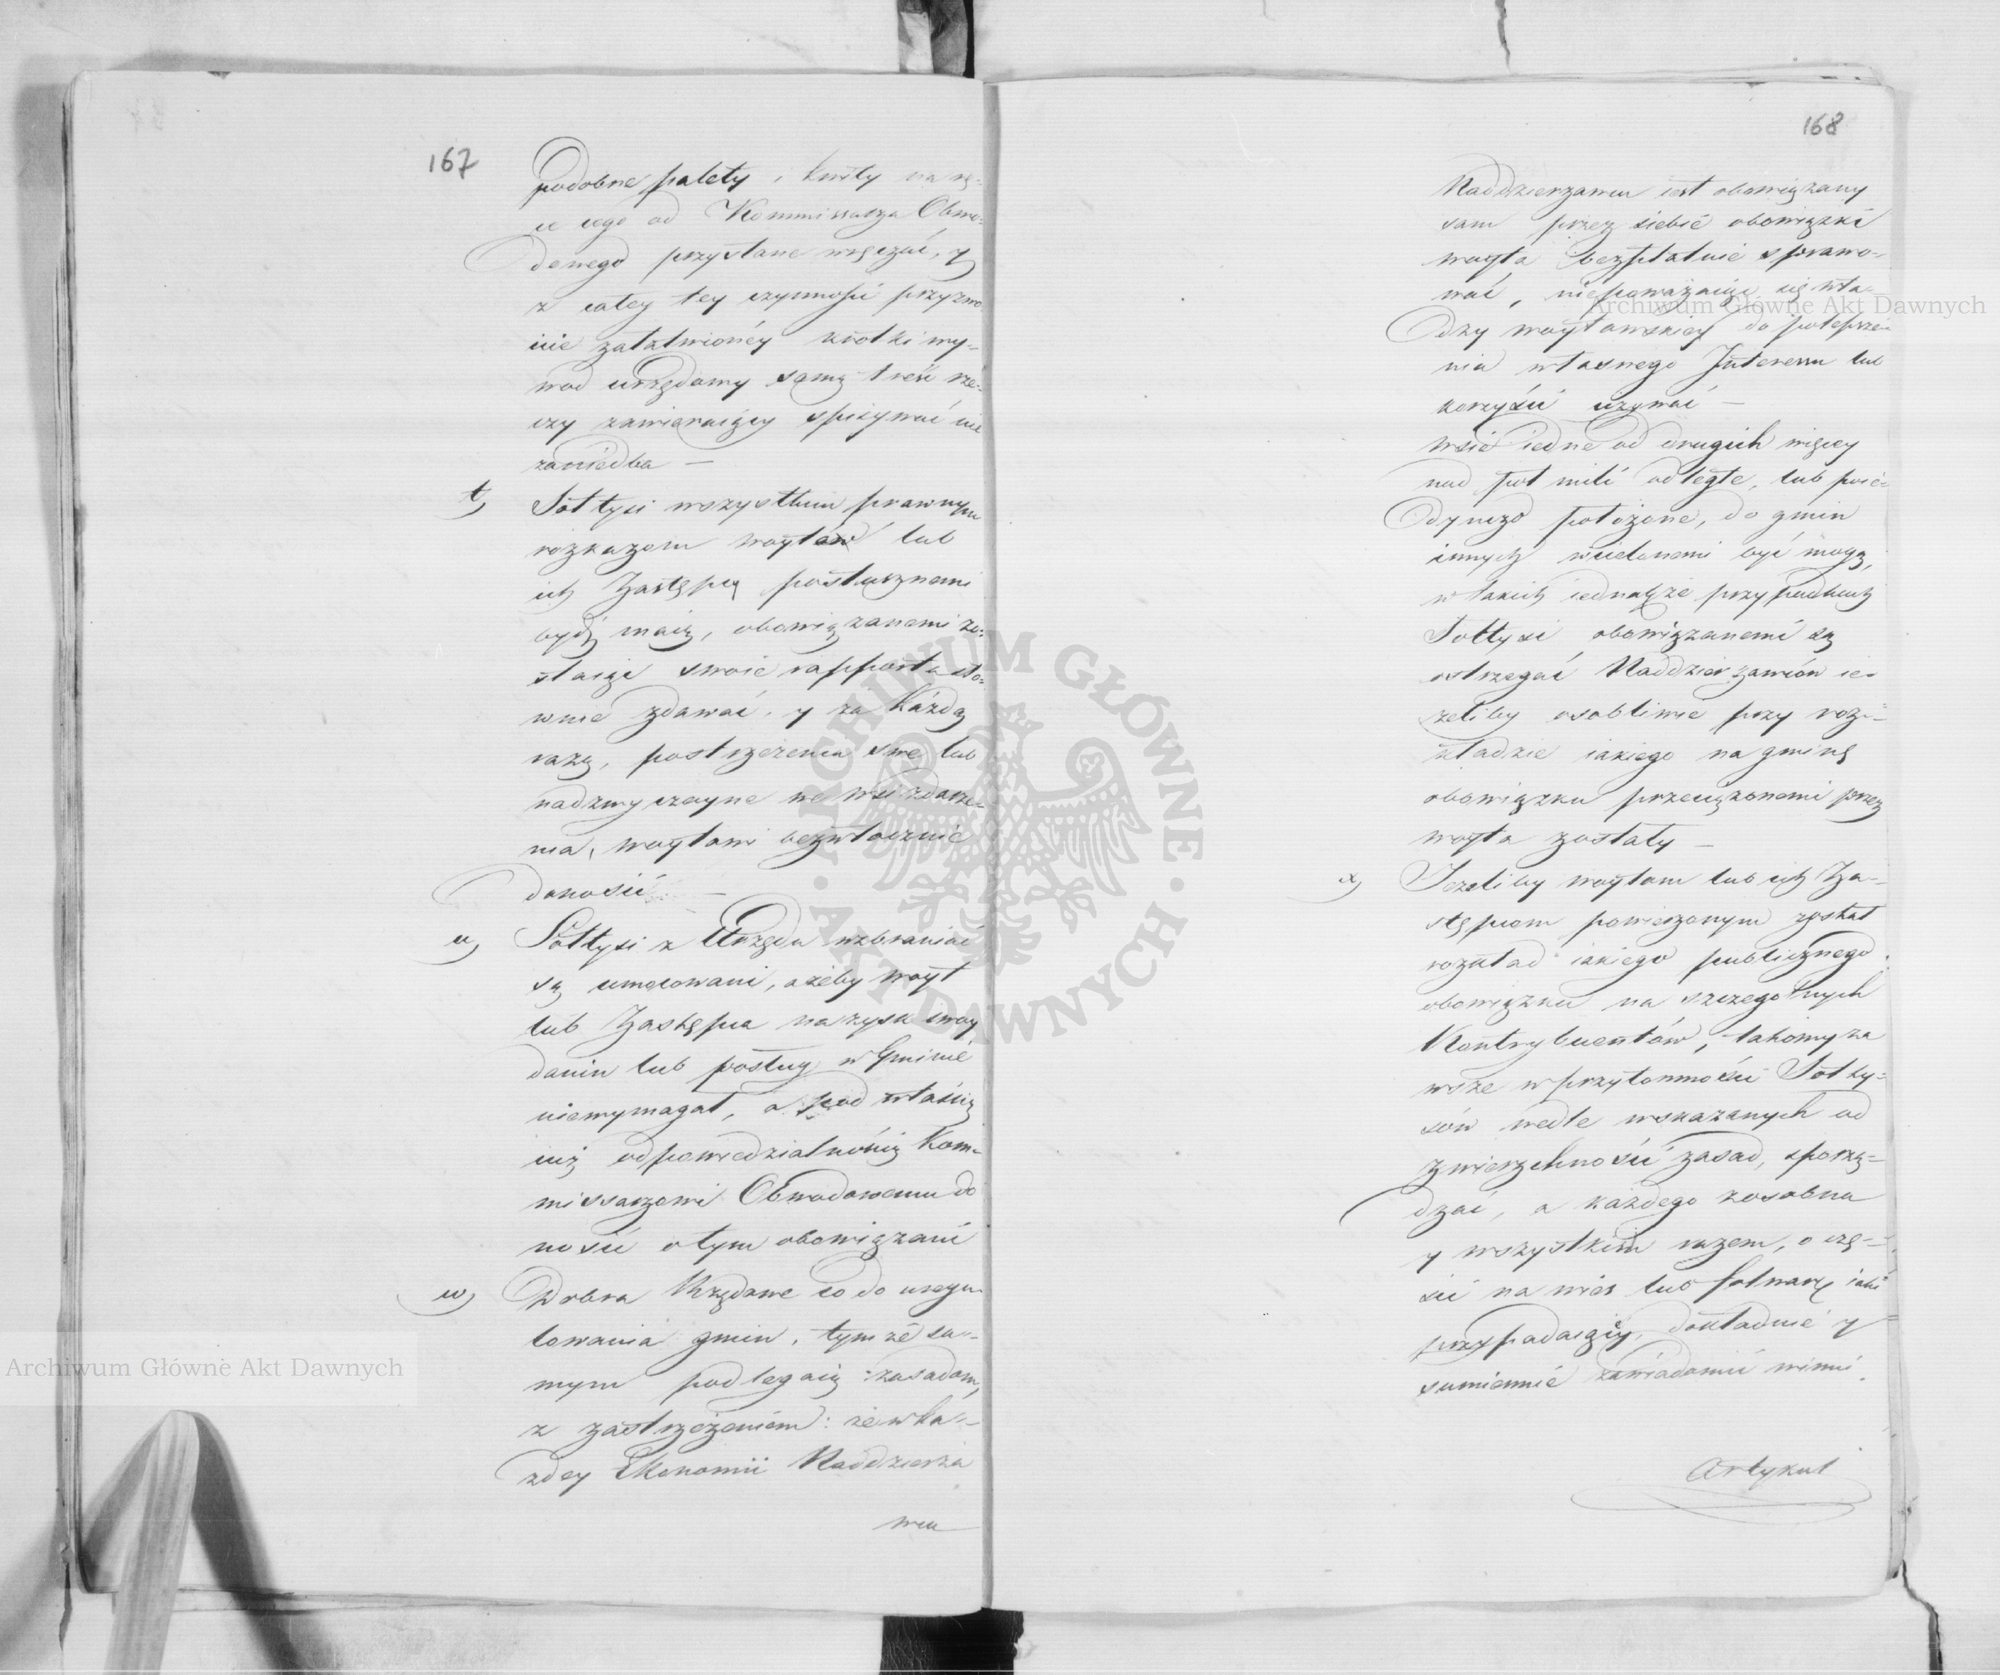 167
podobne palety i kwity na rę-
ce iego od Kommissarza Obwo-
dowego przysłane wręczać, y
z całey tey czynności przyzwo
icie załatwionéy krótki wy-
wod urzędowy samą treść rze-
czy zawieraiący spisywać nie
zaniedba —
t) Sołtysi wszystkim prawnym
rozkazom woytów lub
ich Zastępcy posłusznemi
bydź maią, obowiązanemi zo-
staiąc swoie rapporta sło-
wnie zdawać, y za każdą
razą, postrzeżenia swe lub
nadzwyczayne we wsi zdarze-
nia, woytowi bezwłocznie
donosić —
u) Sołtysi z Urzędu wzbraniać
są umocowani, ażeby woyt
lub Zastępca na zysk swoy
danin lub posług w Gminie
niewymagał, a pod właści
cią odpowiedzialnością Kom-
missarzowi Obwodowemu do
nosić o tym obowiązani
w) Dobra Rządowe co do uregu
lowania gmin, tymże sa-
mym podlegaią zasadom,
z zastrzeżeniem: że w ka-
żdey Ekonomii Naddzierża
wca
168
Naddzierzawca iest obowiązany
sam przez siebie obowiązki
woyta bezpłatnie sprawo-
wać, niepoważaiąc się wła-
dzy woytowskiey do polepsze-
nia własnego Interessu lub
korzyści używać —
wsie iedne od drugich więcey
nad puł mili odległe, lub poie-
dynczo położone, do gmin
innych wcielonemi być mogą,
w takich iednakże przypadkach
Sołtysi obowiązanemi są
ostrzegać Naddzierzawców ie-
żeliby osobliwie przy roz-
kładzie iakiego na gminę
obowiązku przeciążonemi przez
woyta zostały —
x) Jeżeliby woytom lub ich Za-
stępcom powierzonym został
rozkład iakiego publicznego
obowiązku na szczegolnych
Kontrybuentów, takowy za
wsze w przytomności Sołty-
sów wedle wskazanych od
zwierzchności zasad, sporzą-
dzać, a każdego zosobna
y wszystkich razem, o czę-
ści na wieś lub folwark iaki
przypadaiącey, dokładnie y
sumiennie zawiadomić winni.
Artykuł
Archiwum Główne Akt Dawnych
Archiwum Główne Akt Dawnych
ARCHIWUM GŁÓWNE · AKT DAWNYCH ·